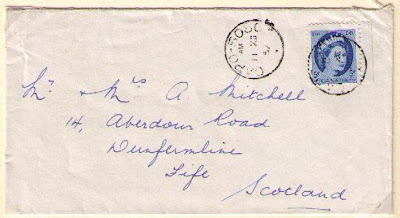 CAPO-5050
AM
11 XII
57
CANADA
Mr. & Mrs A. Mitchell
14, Aberdour Road
Dunfermline
Fife
Scotland